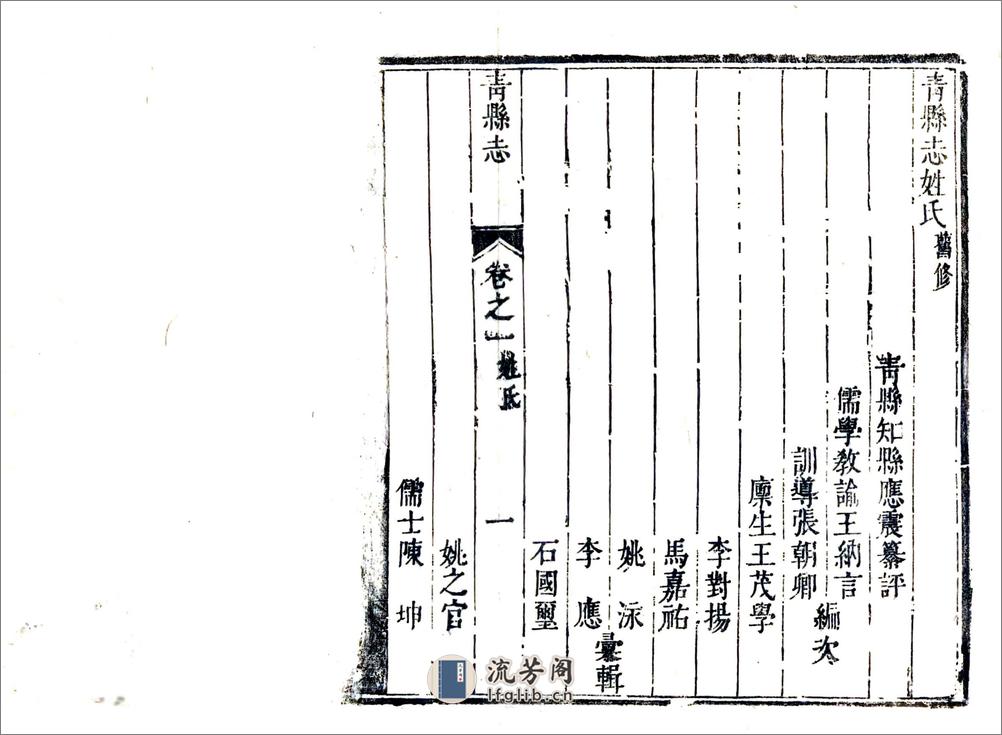 青縣志姓氏舊修
青縣知縣應震纂評
儒學教諭王納言
訓導張朝卿
編次
廪生王茂學
李對揚
馬嘉祐
姚泳
李應
彙輯
石國璽
青縣志 卷之一 姓氏 一
姚之官
儒士陳坤
流芳阁
lfglib.cn